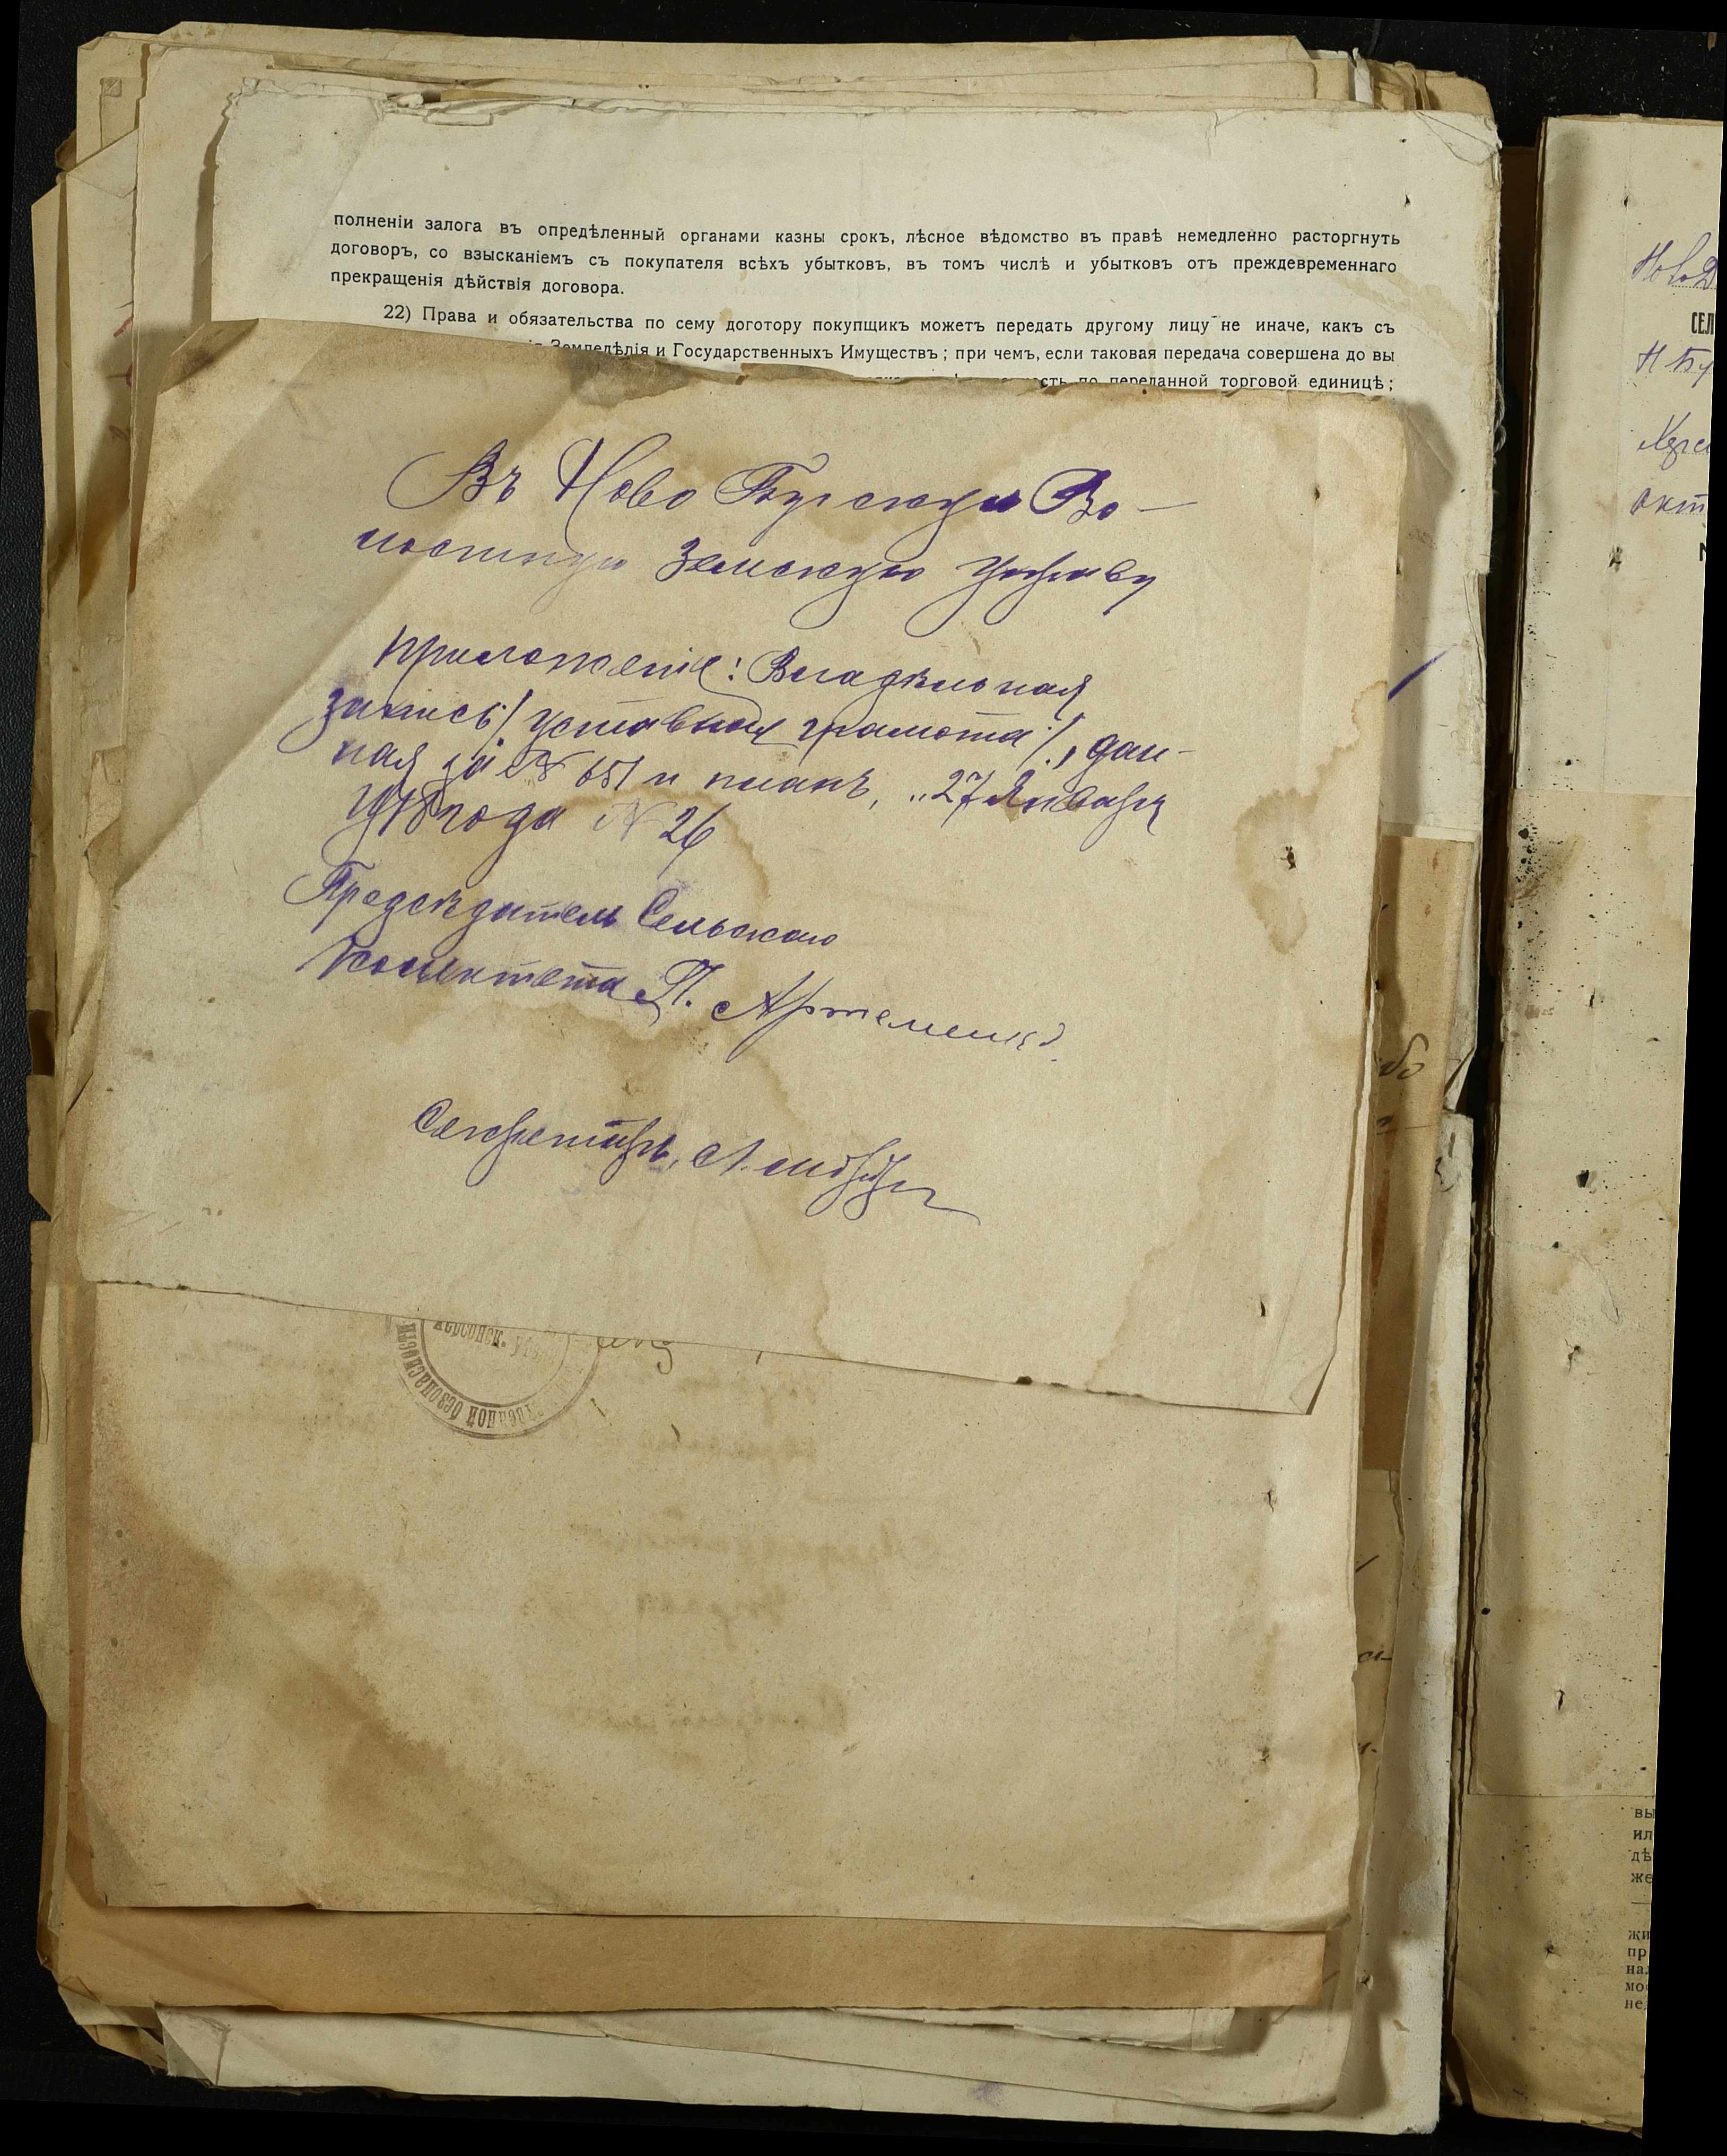 полненіи залога въ опредѣленный органами казны срокъ, лѣсное вѣдомство въ правѣ немедленно расторгнуть
договоръ, со взысканіемъ съ покупателя всѣхъ убытковъ, въ томъ числѣ и убытковъ отъ преждевременнаго
прекращенія дѣйствія договора.
22) Права и обязательства по сему договору покупщикъ можетъ передать другому лицу не иначе, какъ съ
Земледѣлія и Государственныхъ Имуществъ; при чемъ, если таковая передача совершена до вы
по переданной торговой единицѣ;
Въ Ново Бугскую Во-
лостную Земскую Управу
Приложеніе: Владѣльная
запись /: уставная грамота :/, дан-
ная за № 651 и планъ, "27 Января
1918 года № 26
Предсѣдатель Сельскаго
Комитета П. Артеменко
Секретарь,
Херсонск.
безопасности
Ново
СЕЛ
Н Бу
Херс
окт
бо
вы
ил
дѣ
же
жи
пр
на
мо
не